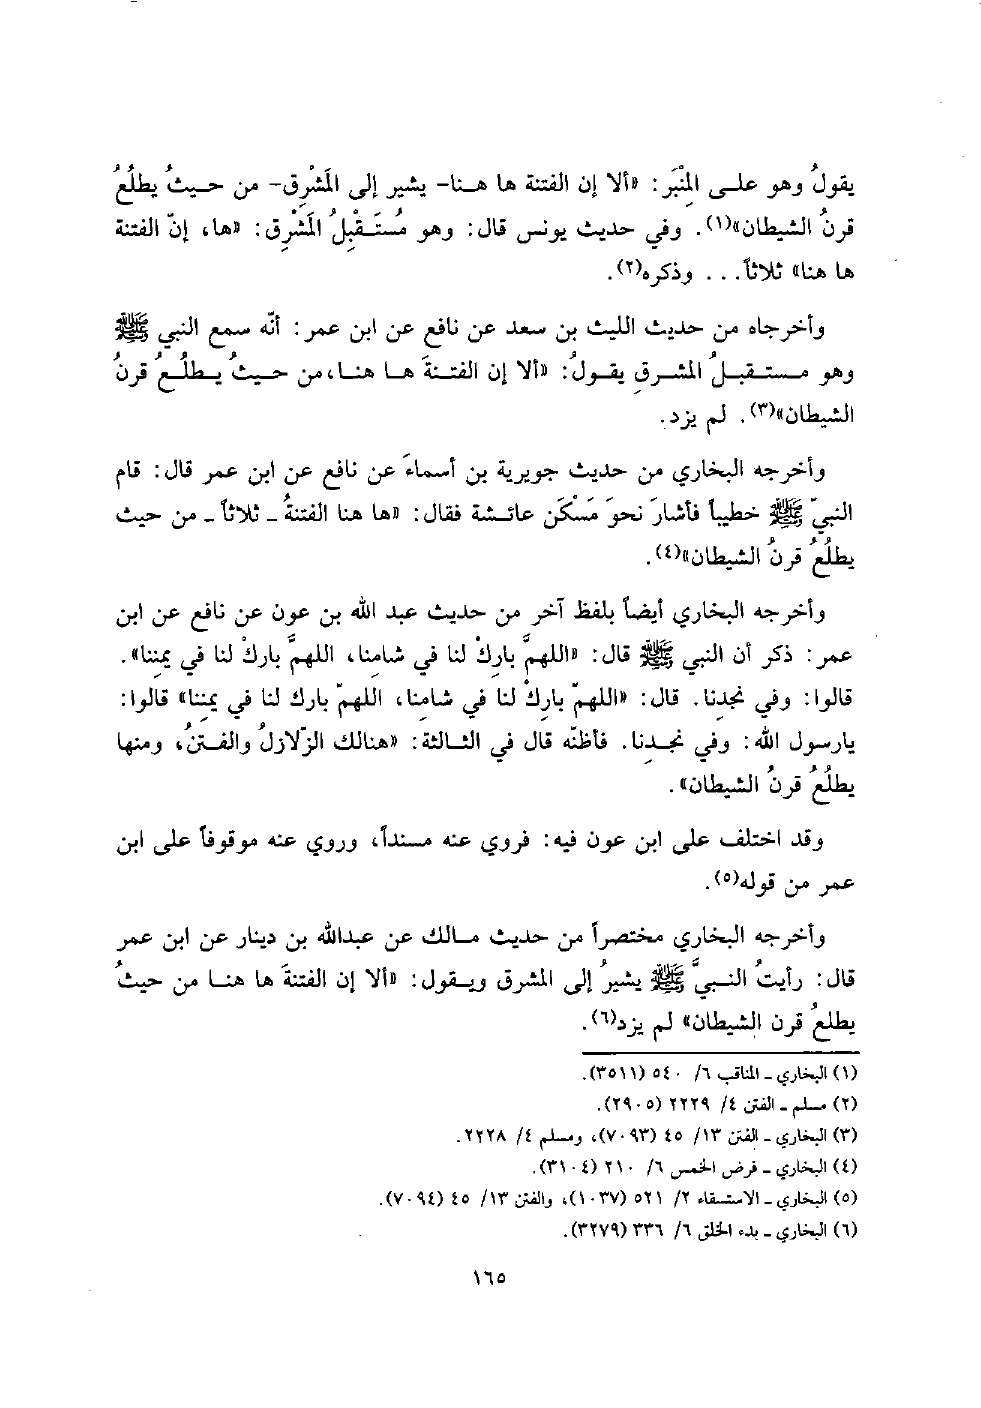 يقولُ وهو على المِنْبَر: «ألا إن الفتنة ها هنا- يشير إلى المَشْرِق- من حيثُ يطلُعُ
قرنُ الشيطان»(١). وفي حديث يونس قال: وهو مُستَقْبِلُ المَشْرِق: «ها، إنّ الفتنة
ها هنا» ثلاثاً... وذكره(٢).
وأخرجاه من حديث الليث بن سعد عن نافع عن ابن عمر: أنّه سمع النبي ﷺ
وهو مستقبلُ المشرقِ يقولُ: «ألا إن الفتنةَ ها هنا، من حيثُ يطلُعُ قرنُ
الشيطان»(٣). لم يزد.
وأخرجه البخاري من حديث جويرية بن أسماءَ عن نافع عن ابن عمر قال: قام
النبيّ ﷺ خطيباً فأشارَ نحوَ مَسْكَن عائشة فقال: «ها هنا الفتنةُ ـ ثلاثاً ـ من حيث
يطلُعُ قرنُ الشيطان»(٤).
وأخرجه البخاري أيضاً بلفظ آخر من حديث عبد الله بن عون عن نافع عن ابن
عمر: ذكر أن النبي ﷺ قال: «اللهمَّ بارِكْ لنا في شامنا، اللهمَّ باركْ لنا في يمننا».
قالوا: وفي نجدِنا. قال: «اللهمّ بارِكْ لنا في شامنِا، اللهمّ بارك لنا في يمننِا» قالوا:
يارسول الله: وفي نجدِنا. فأظنّه قال في الثالثة: «هنالك الزّلازلُ والفتنُ، ومنها
يطلُعُ قرنُ الشيطان».
وقد اختلف على ابن عون فيه: فروي عنه مسنداً، وروي عنه موقوفاً على ابن
عمر من قوله(٥).
وأخرجه البخاري مختصراً من حديث مالك عن عبدالله بن دينار عن ابن عمر
قال: رأيتُ النبيَّ ﷺ يشيرُ إلى المشرق ويقول: «ألا إن الفتنةَ ها هنا من حيثُ
يطلعُ قرن الشيطان» لم يزد(٦).
(١) البخاري ـ المناقب ٦/ ٥٤٠ (٣٥١١).
(٢) مسلم ـ الفتن ٤/ ٢٢٢٩ (٢٩٠٥).
(٣) البخاري ـ الفتن ١٣/ ٤٥ (٧٠٩٣)، ومسلم ٤/ ٢٢٢٨.
(٤) البخاري ـ فرض الخمس ٦/ ٢١٠ (٣١٠٤).
(٥) البخاري ـ الاستسقاء ٢/ ٥٢١ (١٠٣٧)، والفتن ١٣/ ٤٥ (٧٠٩٤).
(٦) البخاري ـ بدء الخلق ٦/ ٣٣٦ (٣٢٧٩).
١٦٥